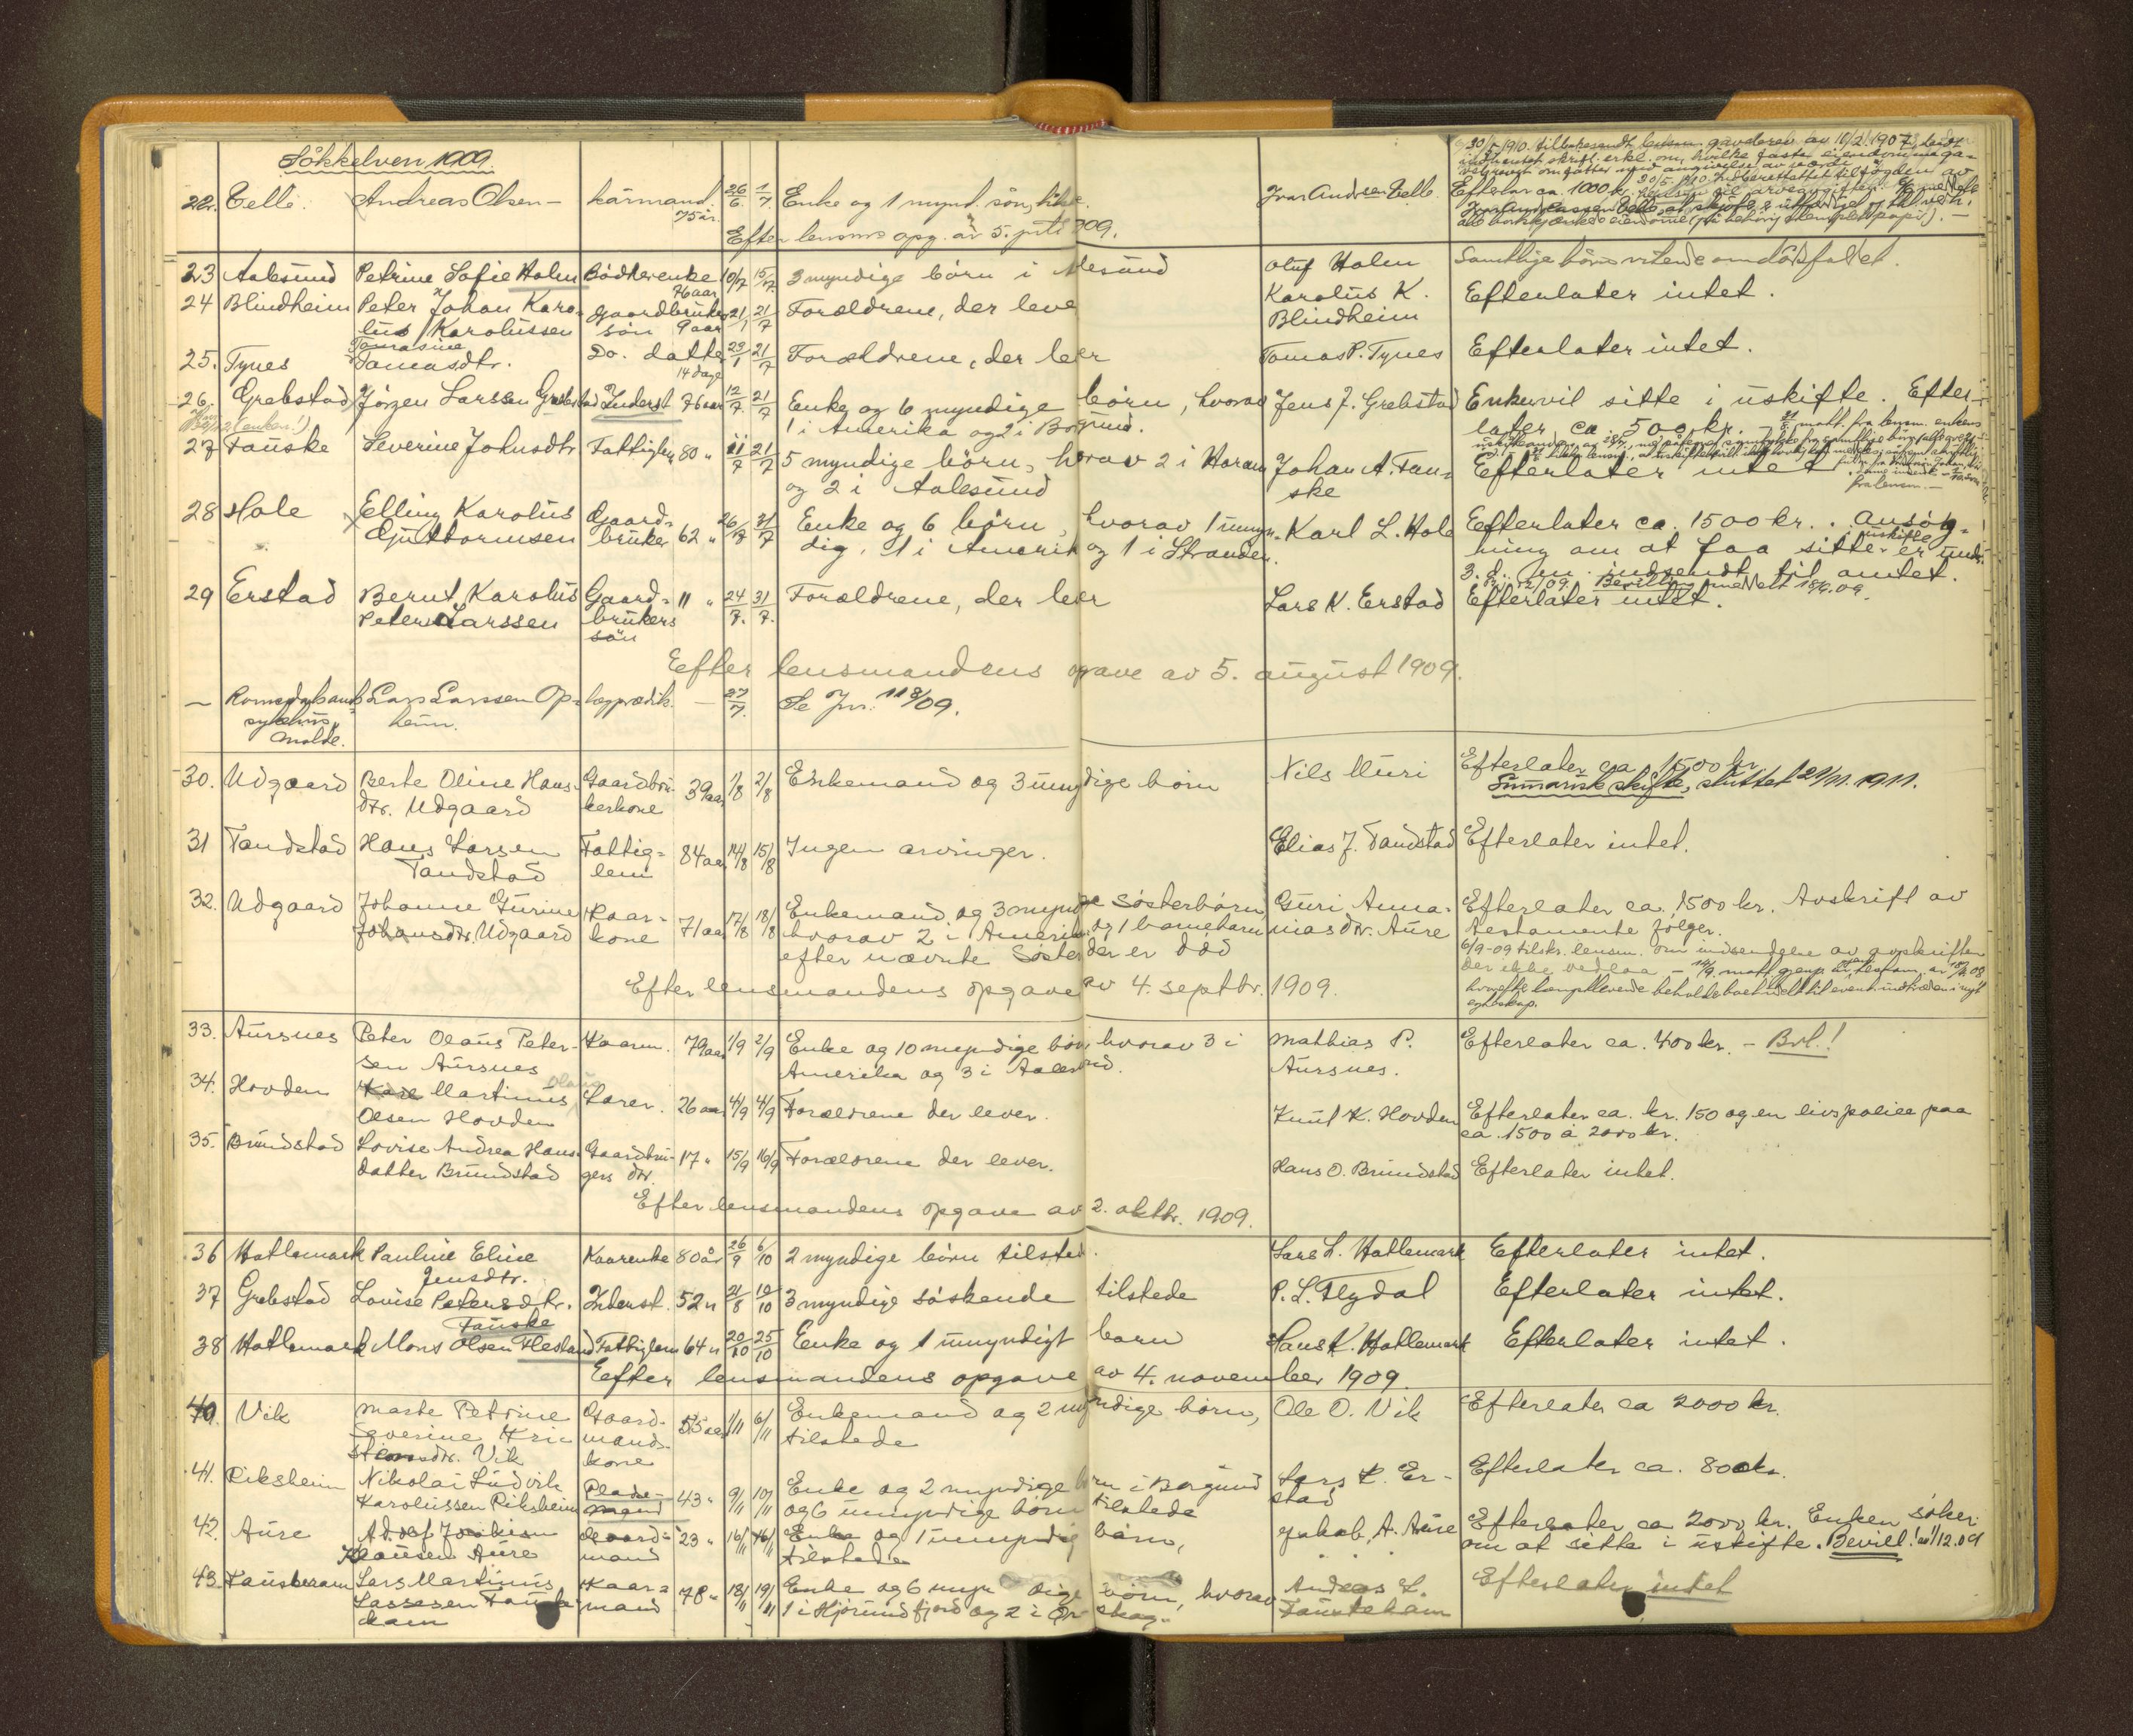 Søkkelven 1909.
22. Velle. Andreas Olsen - kårmand. 75 år. 26/6. 1/7 Enke og 1 mynd. søn, Ivar Andersen Velle. Efterlar ca. 1000 kr.
Efter lensms opg. av 5. juli 1909.
23 Aalesund Petrine Sofie Holm Bødkerenke 76 aar 10/7 15/7. 3 myndige børn i Alesund Oluf Holm Samtlige børn vitende om dødsfaldet.
24 Blindheim Peter Johan Karo- gaardbruker 21/1 21/7 Forældrene, der leve Karolus K. Efterlater intet.
lus Karolussen søn 9 aar Blindheim
Tomasine
25. Tynes Tomasdtr. Do. datter 14 dage 23/1 21/7 Forældrene, der lever Tomas P. Tynes Efterlater intet.
26. Grebstad Jørgen Larssen Grebstad Inderst 76 aar 12/7. 21/7 Enke og 6 myndige børn, hvorav Jens J. Grebstad Enken vil sitte i uskifte. Efter-
1 i Amerika og 2 i Borgund. later ca 500 kr.
27 Fauske Severine Johnsdtr Fattiglem 80 " 11/7 21/7 5 myndige børn, horav 2 i Haram Johan A. Fau- Efterlater intet
og 2 i Aalesund ske
28 Hole Elling Karolus Gaard- 26/7 31/7 Enke og 6 børn, hvorav 1 umyn- Karl L. Hole Efterlater ca. 1500 kr. Ansøg-
Guttormsen bruker 62 " dig, 1 i Amerika og 1 i Stranden. ning om at faa sitte i uskifte er under
3. d. m. indsendt til amtet.
Bevilling meddelt 18/9.09.
29 Erstad Bernt Karolus Gaard- 11 " 24/7. 31/7. Forældrene, der lever Lars K. Erstad Efterlater intet.
Peter Larssen brukers
søn
Efter lensmandens opgave av 5. august 1909.
— Romsdalsamts Lars Larssen Op- lægprædik. — 27/7. Se Jnr. 118/09.
sykehus, heim.
Molde.
30. Udgaard Berte Oline Hans- Gaardbru- 39 aar 1/8 2/8 Enkemand og 3 umyndige børn Nils Muri Efterlater ca 1500 kr
dtr. Udgaard kerkone Summarisk skifte, sluttet 21/11. 1911.
31 Tandstad Hans Larsen Fattig- 84 aar 14/8 15/8 Ingen arvinger. Elias J. Tandstad Efterlater intet.
Tandstad lem
32. Udgaard Johanne Gurine Kaar- 71 aar 17/8 18/8 Enkemand og 3 myndige søsterbørn, Guri Anna- Efterlater ca. 1500 kr. Avskrift av
Johansdtr. Udgaard kone hvorav 2 i Amerika, og 1 barnebarn niasdtr. Aure Testamente følger.
efter nævnte Søster der er død 6/9-09 tilskr. lensm. om indsendelse av avskriften
der ikke vedlaa -
Efter lensmandens opgave av 4. septbr. 1909.
33. Aursnes Peter Olaus Peter- Kaarm. 79 aar 1/9 2/9 Enke og 10 myndige børn, hvorav 3 i Mathias P. Efterlater ca. 400 kr. - Bvl.!
sen Aursnes Amerika og 3 i Aalesund. Aursnes.
34. Hovden Karl Martinus Olaus Lærer. 26 aar 4/9 4/9 Forældrene der lever. Knut K. Hovden Efterlater ca. kr. 150 og en livspolice paa
Olsen Hovden ca. 1500 à 2000 kr.
35. Brundstad Lovise Andrea Hans- Gaardbru- 17 " 15/9 16/9 Forældrene der lever. Hans O. Brundstad Efterlater intet.
datter Brundstad gers dtr.
Efter lensmandens opgave av 2. oktbr. 1909.
36 Hatlemark Pauline Eline Kaarenke 80 år 26/9 6/10 2 myndige børn tilsted. Lars L. Hatlemark Efterlater intet.
Jensdtr.
37 Grebstad Louise Petersdtr. Inderst. 52 " 21/8 12/10 3 myndige søskende tilstede P. L. Flydal Efterlater intet.
Fauske
38 Hatlemark Mons Olsen Flesland Fattiglem 64 " 20/10 25/10 Enke og 1 umyndigt barn Hans K. Hatlemark Efterlater intet.
Efter lensmandens opgave av 4. november 1909.
40. Vik Marte Petrine Gaard- 55 aar 1/11 6/11 Enkemand og 2 myndige børn, Ole O. Vik Efterlater ca 2000 kr.
Severine Kri- mands- tilstede
stensdtr. Vik kone
41. Riksheim Nikolai Ludvik Plads- 43 " 9/11 10/11 Enke og 2 myndige børn i Borgund Lars K. Er- Efterlater ca. 800 kr.
Karolussen Riksheim mand og 6 umyndige børn tilstede stad
42. Aure Adolf Joakim Gaard- 23 " 16/11 16/11 Enke og 1 umyndig børn, Jakob A. Aure Efterlater ca 2000 kr. Enken søker
Klausen Aure mand tilstede om at sitte i uskifte. Bevill! av 1/12.09
43. Fauskeram Lars Martinus Kaar- 78 " 18/11 19/11 Enke og 6 myndige børn, hvorav Andreas L. Efterlater intet
Lassesen 1 i Hjørundfjord og 2 i Ørskog.
mand